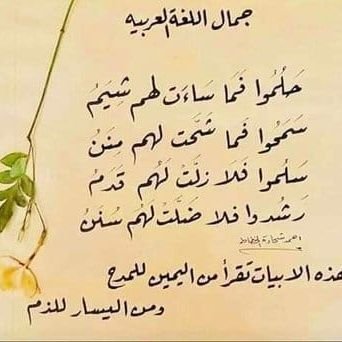 جمال اللغة العربيه
حَلُمُوا فَمَا سَاءَت لهم شِيَمُ
سَمَحُوا فَمَا شَحَّت لهم مِنَنُ
سَلُموا فَلَا زلَّتْ لَهُم قَدمُ
رَشَدوا فلا ضلَّتْ لهُم سُنَنُ
احمد شحادة الخطاط
هذه الابيات تقرأ من اليمين للمدح
ومن اليسار للذم